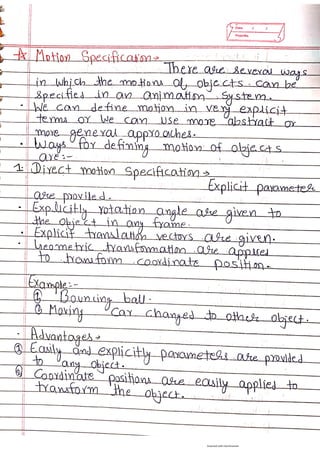 Date / /
☆ Motion Specification →
There are several ways
in which the motions of objects can be
specified in an animation system.
• We can define motion in very explicit
terms or we can use more abstract or
more general approaches.
• Ways for defining motion of objects
are:-
1. Direct motion Specification →
Explicit parameters
are provided.
• Explicitly rotation angle are given to
the object in any frame.
• Explicit translation vectors are given.
• Geometric transformation are applied
to transform coordinate position.
Example:-
① Bouncing ball.
② Moving Car changed to other object.
• Advantages →
① Easily and explicitly parameters are provided
to any object.
② Coordinate positions are easily applied to
transform the object.
Scanned with CamScanner